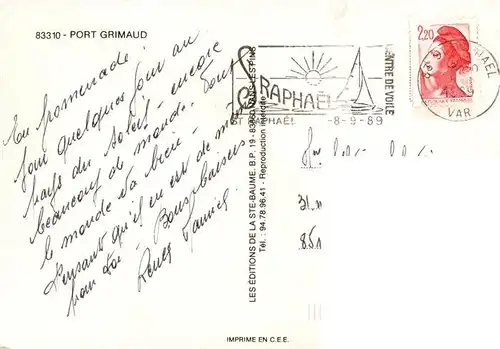 83310 - PORT GRIMAUD
En promenade
pour quelques jours au
pays du soleil - encore
beaucoup de monde. Tout
le monde va bien -
Pensant qu'il en est de même
pour toi - Bons baisers
2,20
ST RAPHAËL
ST RAPHAËL -8-9-89
CENTRE DE VOILE
RAPHAEL
VAR
LES ÉDITIONS DE LA STE-BAUME. B.P. 19 - 83
Tél.: 94.78.96.41 - Reproduction interdite
31
851
IMPRIME EN C.E.E.